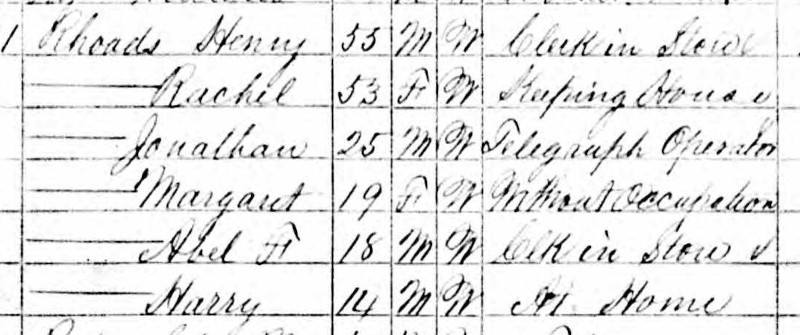 1 Rhoads Henry 53 M W Clerk in Store
—— Rachel 53 F W Keeping House
—— Jonathan 25 M W Telegraph Operator
—— Margaret 19 F W Without Occupation
—— Abel F 18 M W Clk in Store
—— Harry 14 M W At Home